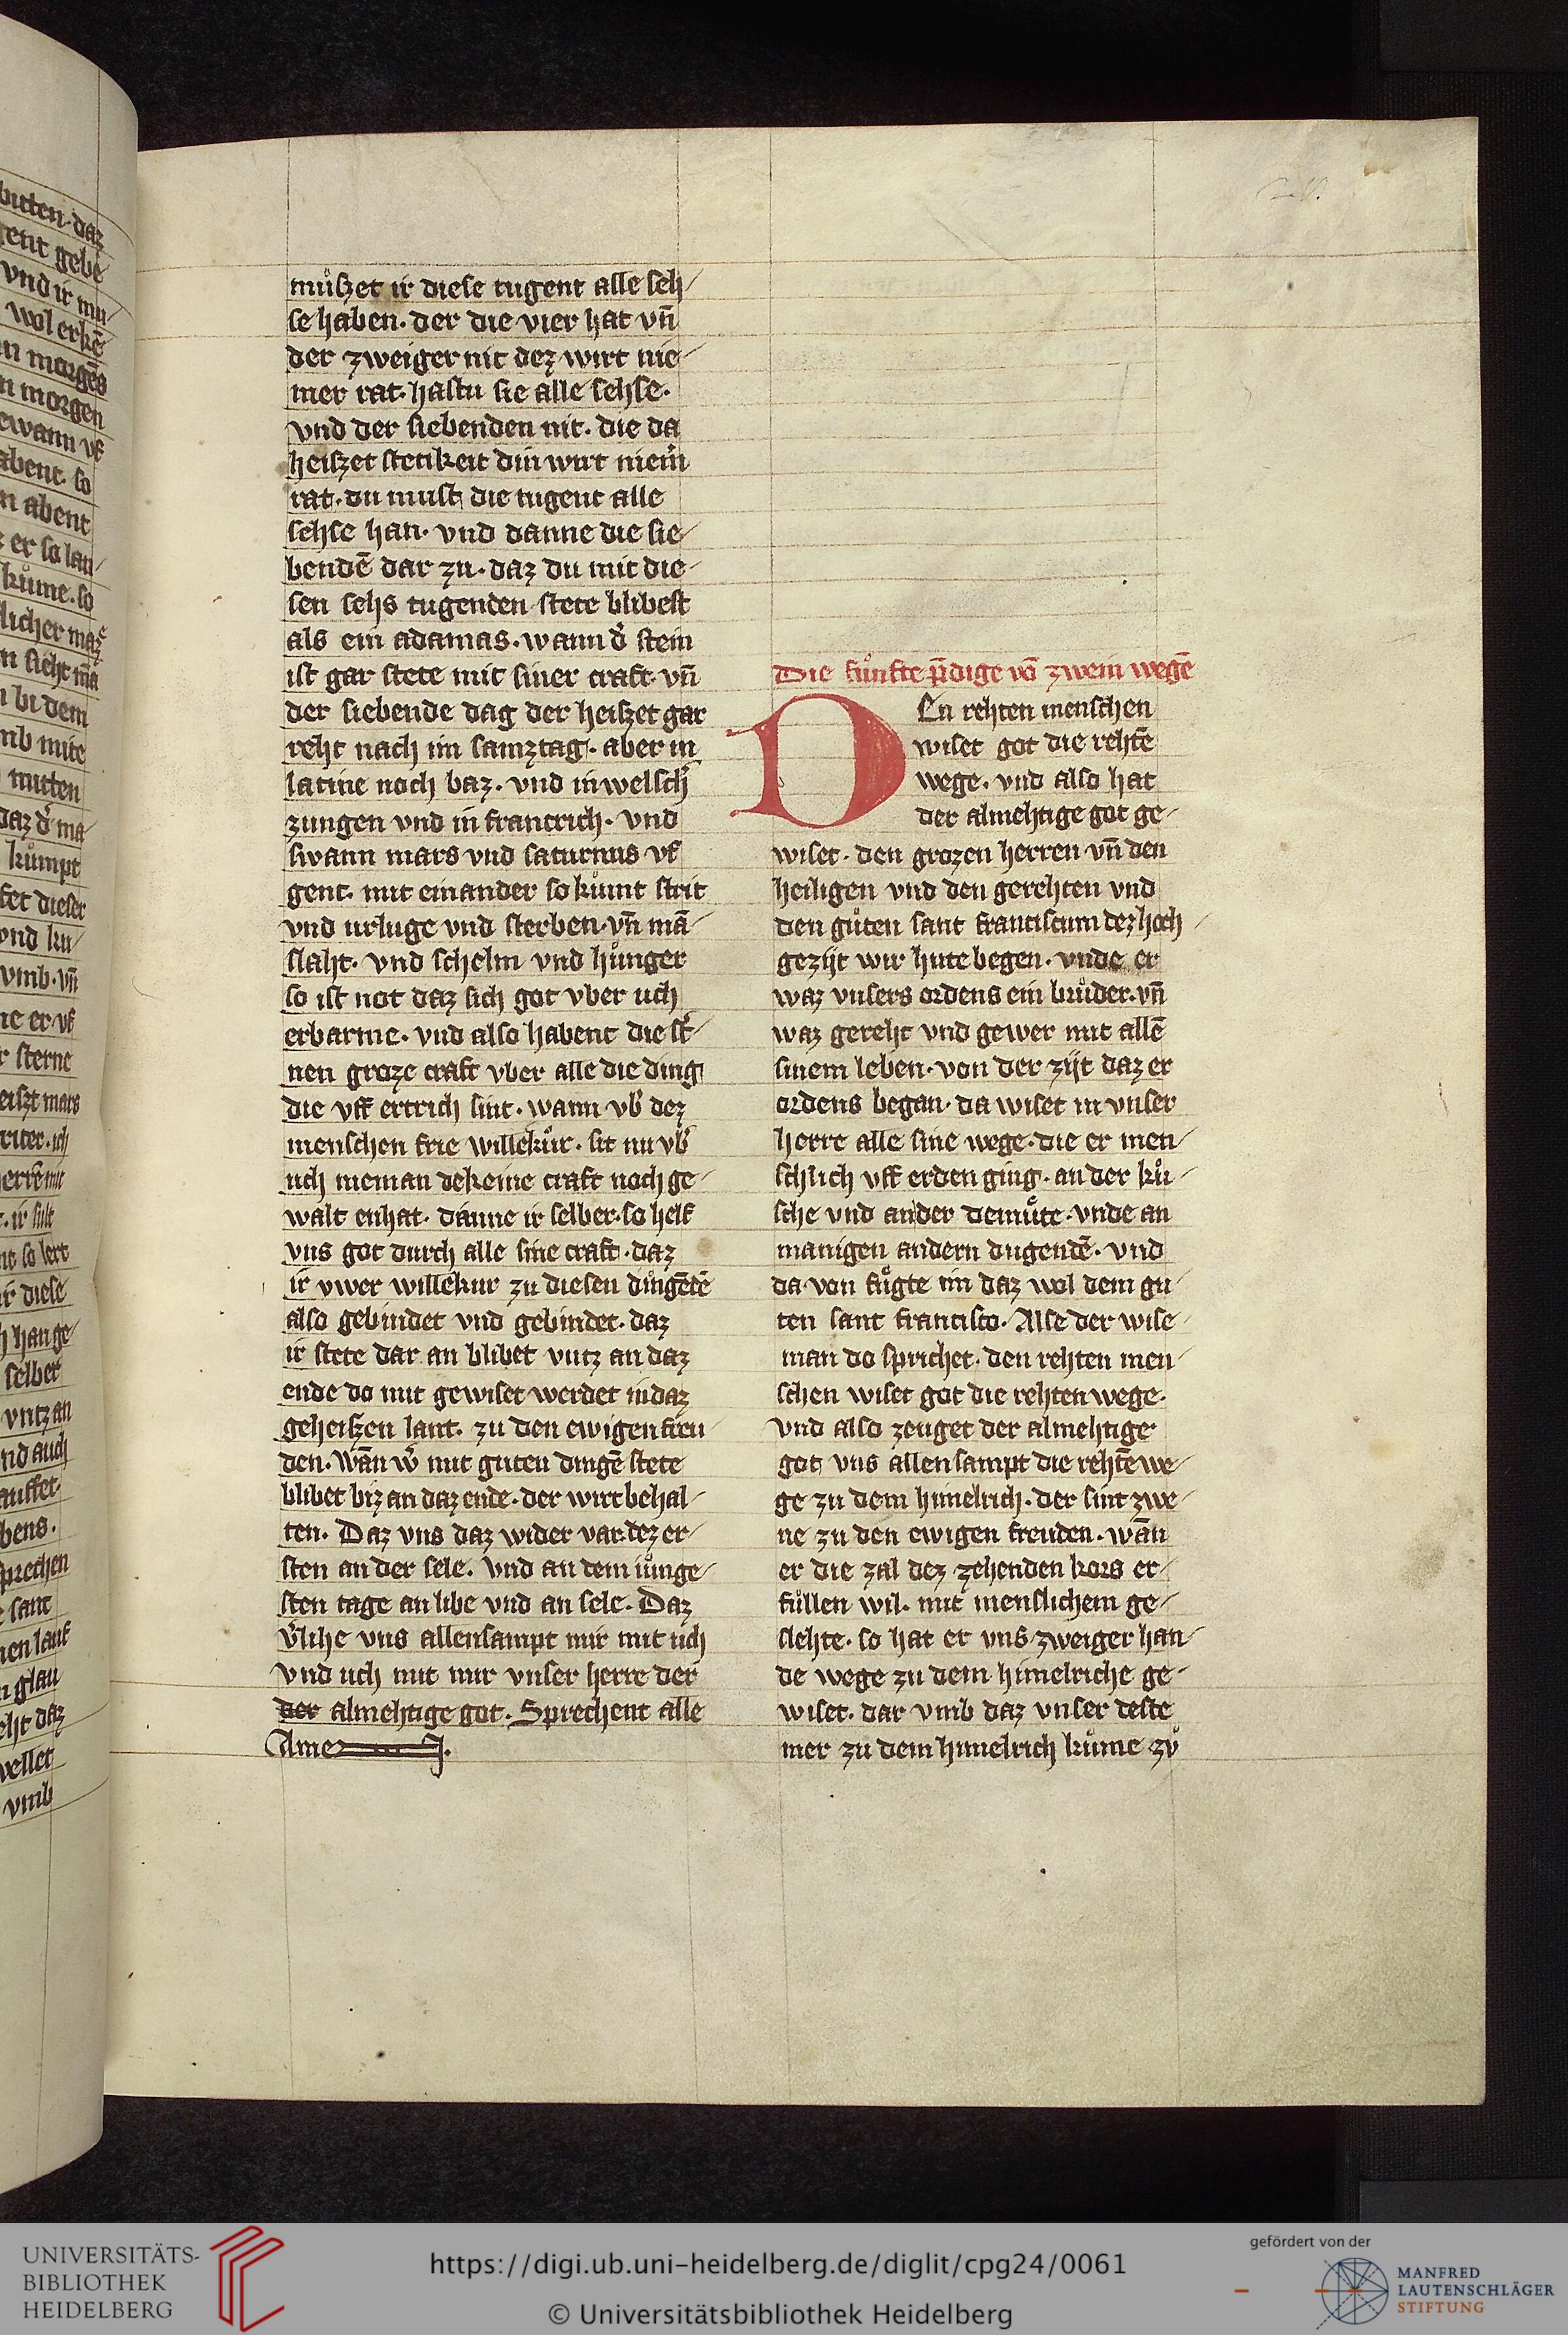 buten. daz
gent gebē
vnd ir mu-
wol erkē
morgēs
n morgen
ewann vf
abent. so
n abent
er so lan-
kůme. so
licher maz
n siht mā
bi dem
mb mite
mitten
daz d̓ ma-
kůmpt
fet dieser
vnd ku-
vmb. vn̄
er vf
sterne
heiszt mars
ir sult
so lert
ir diese
han ge-
selber
vntz an
nd auch
auffet.
bens.
sprechen
sant
en lauf
glau
cht daz
wellet
vmb
můszet ir diese tugent alle seh-
se haben. der die vier hat vn̄
der zweiger nit dez wirt nie-
mer rat. hastu sie alle sehse.
vnd der siebenden nit. die da
heiszet stetikeit din wirt niem̓
rat. du must die tugent alle
sehse han. vnd danne die sie-
bendē dar zu. daz du mit die-
sen sehs tugenden stete blibest
als ein adamas. wann d̓ stein
ist gar stete mit siner craft. vn̄
der siebende dag der heiszet gar
reht nach im samztag. aber in
latine noch baz. vnd in welsch̓
zungen vnd in francrich. vnd
swann mars vnd saturnus vf
gent. mit einander so kůmt strit
vnd urluge vnd sterben. vn̄ mā-
slaht. vnd schelm vnd hůnger
so ist not daz sich got vber uch
erbarme. vnd also habent die st̓-
nen groze craft vber alle die ding
die vff ertrich sint. wann vb̓ dez
menschen frie willekůr. sit nu vb̓
uch nieman dekeine craft noch ge-
walt enhat. danne ir selber. so helf
vns got durch alle sine craft. daz
ir vwer willekur zu diesen důgētē
also gebindet vnd gebindet. daz
ir stete dar an blibet vntz an daz
ende do mit gewiset werdet in daz
geheiszen lant. zu den ewigen freu
den. Wān w̓ mit guten dingē stete
blibet biz an daz ende. der wirt behal-
ten. Daz vns daz wider var. dez er-
sten an der sele. vnd an dem iůnge-
sten tage an libe vnd an sele. Daz
v̓lihe vns allensampt mir mit uch
vnd uch mit mir vnser herre der
der almehtige got. Sprechent alle
Amen.
Die fůnfte p̄dige vō zwein wegē
DEn rehten menschen
wiset got die rehtē
wege. vnd also hat
der almehtige got ge-
wiset. den grozen herren vn̄ den
heiligen vnd den gerehten vnd
den gůten sant franciscum dez hoch-
gezijt wir hute begen. vnde er
waz vnsers ordens ein brůder. vn̄
waz gereht vnd gewer mit allē
sinem leben. von der zijt daz er
ordens began. da wiset in vnser
herre alle sine wege. die er men-
schlich vff erden ging. an der ků-
sche vnd an der demůte. vnde an
manigen andern dugendē. vnd
da von fůgte im daz wol dem gu-
ten sant francisco. Alse der wise-
man do sprichet. den rehten men-
schen wiset got die rehten wege.
vnd also zeuget der almehtige
got vns allensampt die rehtē we-
ge zu dem himelrich. der sint zwe-
ne zu den ewigen freuden. wān
er die zal dez zehenden kors er-
fůllen wil. mit menslichem ge-
slehte. so hat er vns zweiger han-
de wege zu dem himelriche ge-
wiset. dar vmb daz vnser deste
mer zu dem himelrich kůme zů
UNIVERSITÄTS-
BIBLIOTHEK
HEIDELBERG
https://digi.ub.uni-heidelberg.de/diglit/cpg24/0061
© Universitätsbibliothek Heidelberg
gefördert von der
MANFRED
LAUTENSCHLÄGER
STIFTUNG